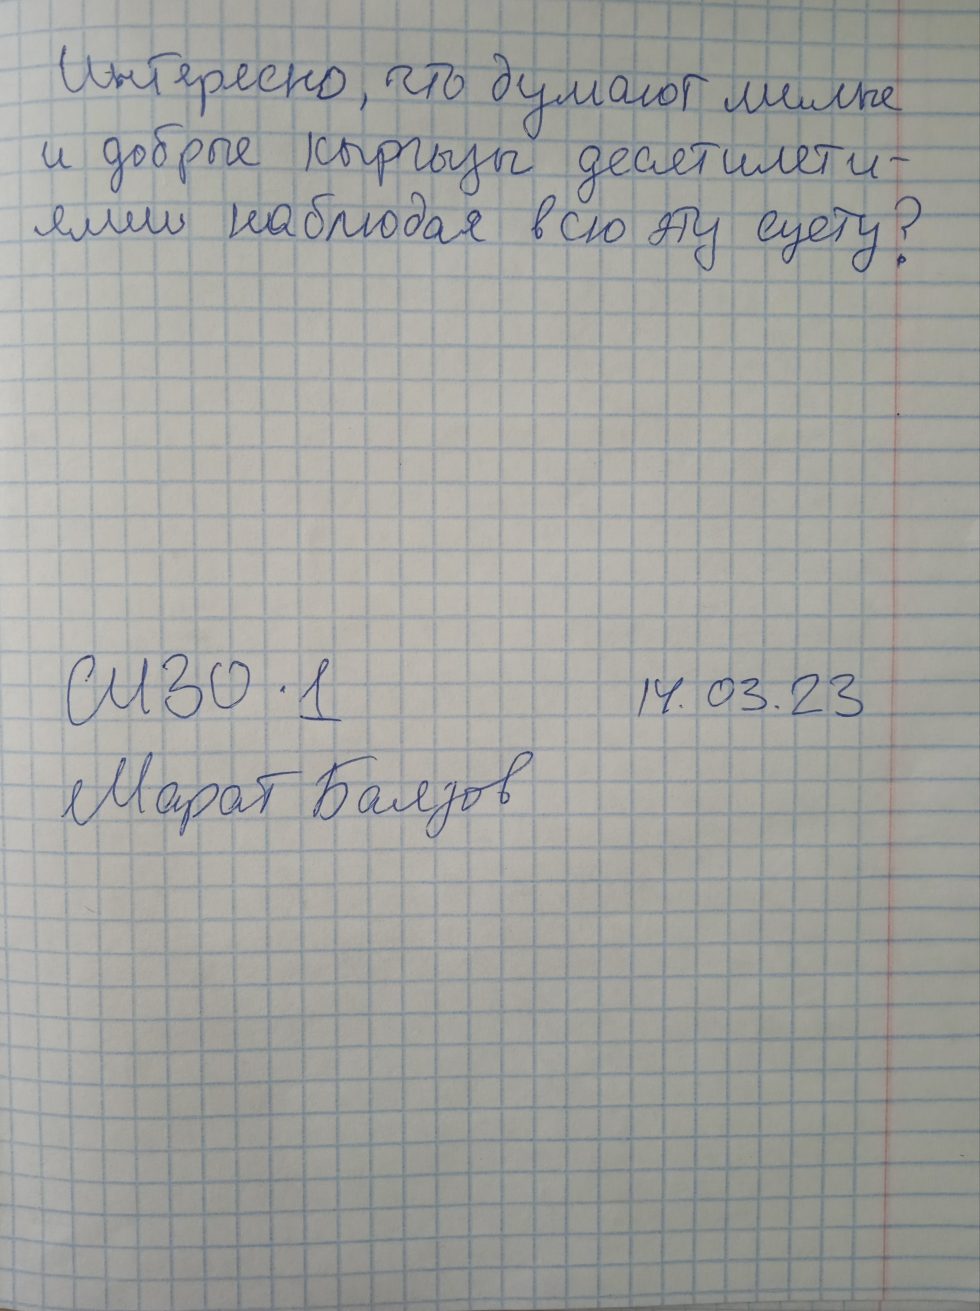 Интересно, что думают милые
и добрые кыргызы десятилети-
ями наблюдая всю эту суету?
СИЗО-1 14.03.23
Марат Баязов